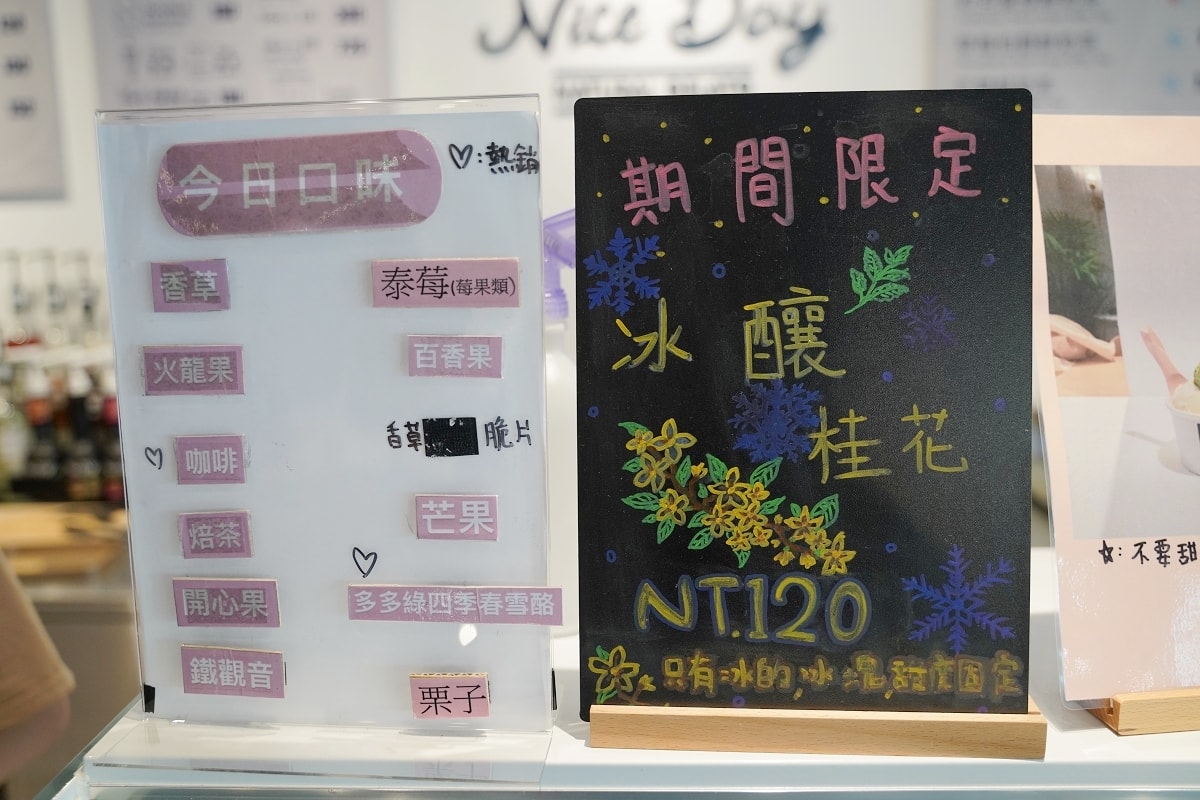 Nice Day
今日口味
♡:熱銷
香草
泰莓(莓果類)
火龍果
百香果
♡咖啡
香草 脆片
焙茶
芒果
開心果
♡多多綠四季春雪酪
鐵觀音
栗子
期間限定
冰釀
桂花
NT.120
只有冰的,冰塊,甜度固定
☆:不要甜